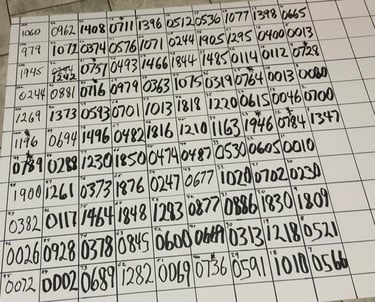 1060 0962 1408 0711 1396 0512 0536 1077 1398 0665
979 1072 0374 0576 1071 0244 1905 1295 0400 0013
1945 1242 0757 0493 1466 1844 1485 0114 0112 0728
0244 0881 0716 0979 0363 1075 0319 0764 0013 0080
1269 1373 0593 0701 1013 1818 1220 0615 0046 0700
1196 0694 1496 0482 1816 1210 1163 1946 0784 1347
0789 0288 1230 1850 0474 0487 0530 0605 0010
1900 1261 0373 1876 0247 0677 1020 0702 0230
0382 0117 1464 1848 1293 0877 0886 1830 1809
0026 0928 0378 0845 0600 0313 1218 0521
0072 0002 0689 1282 0069 0736 0591 1010 0566